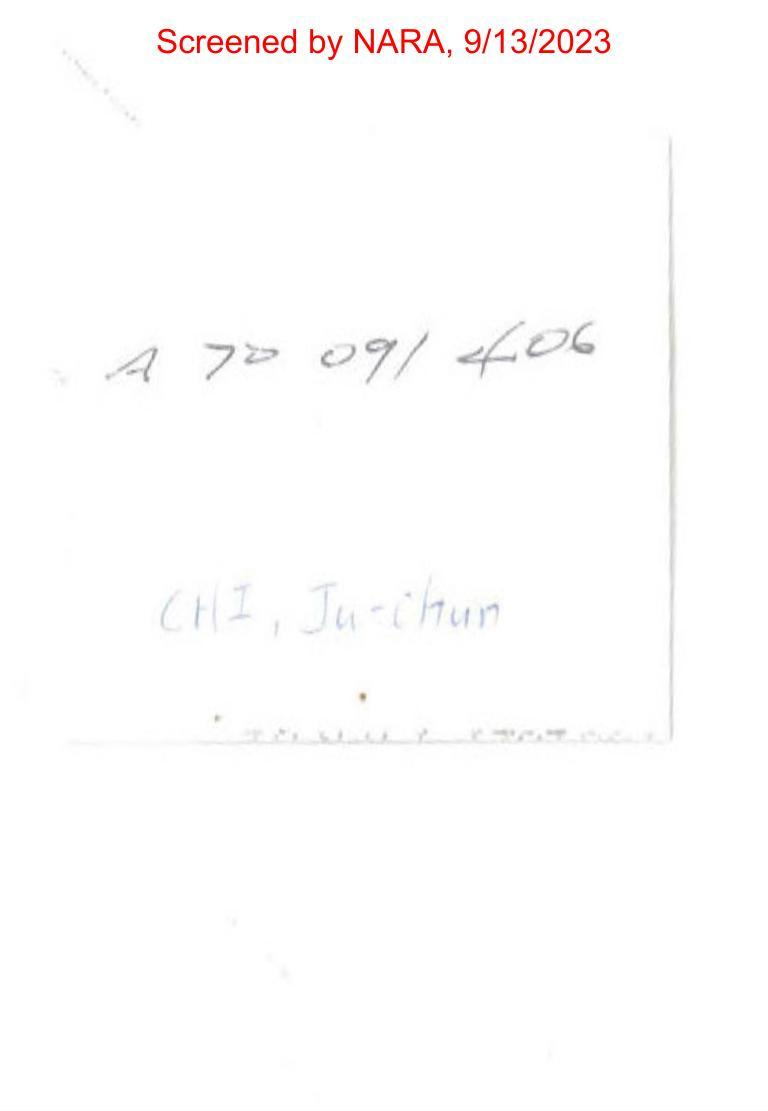 Screened by NARA, 9/13/2023
A 70 091 406
CHI, Ju-chun